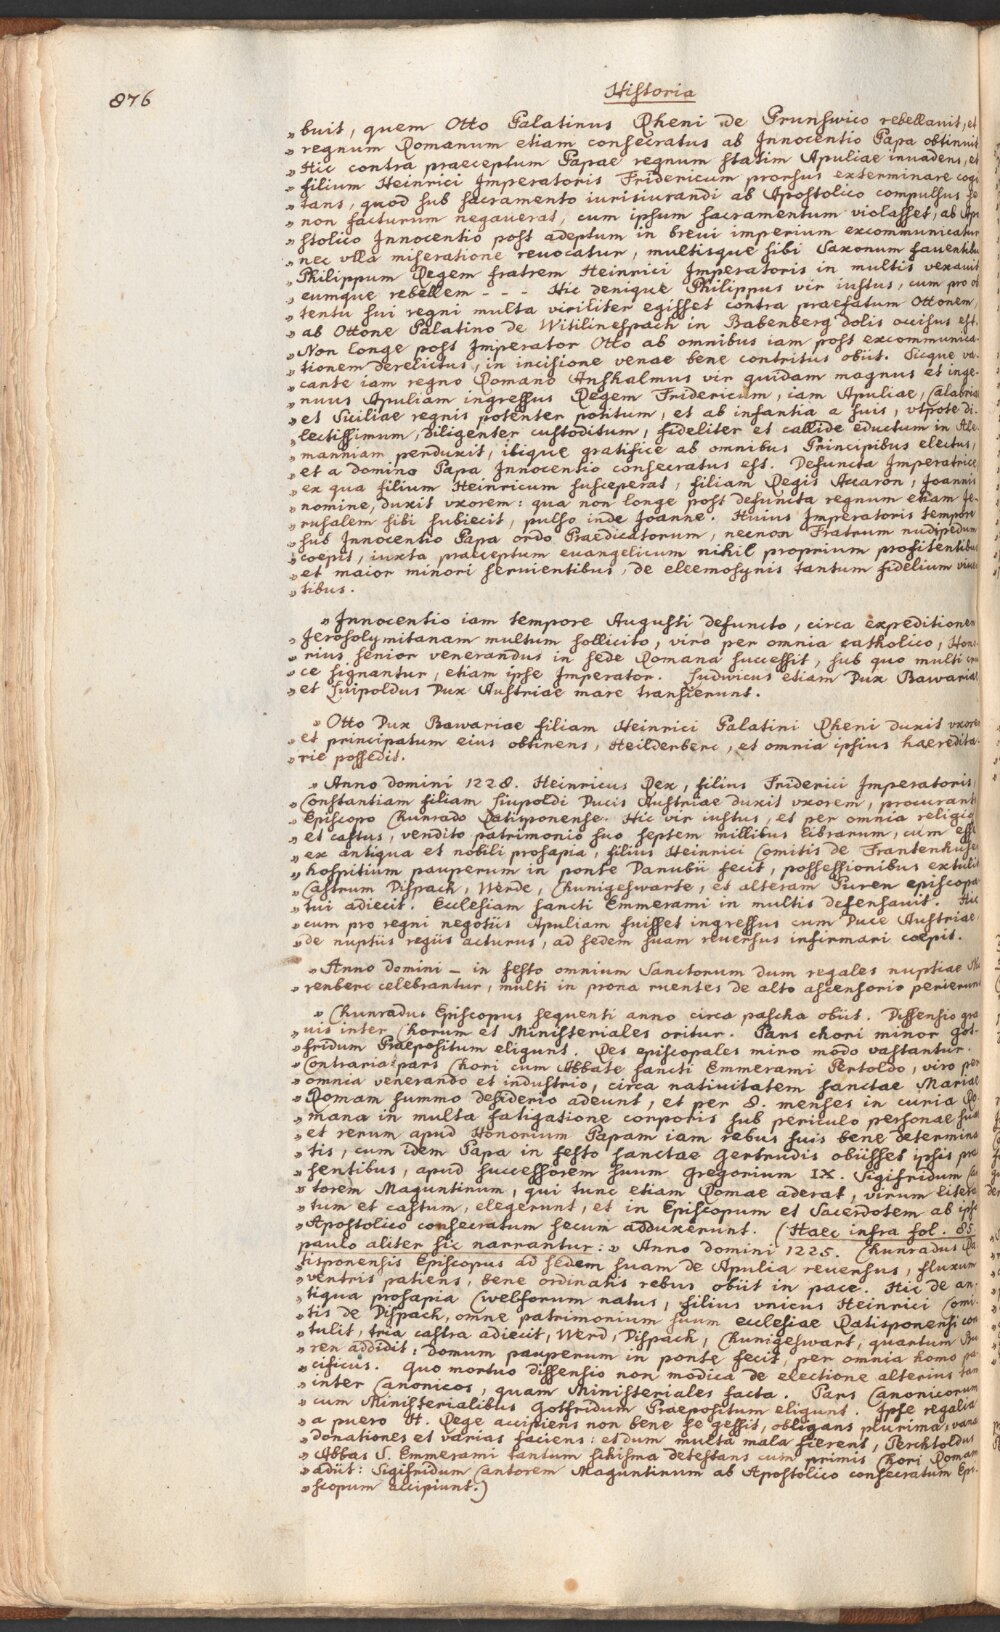 876
Historia
„buit, quem Otto Palatinus Rheni de Prunswico rebellavit, et
„regnum Romanum etiam consecratus ab Innocentio Papa obtinuit
„Hic contra praeceptum Papae regnum statim Apuliae inuadens, et
„filium Heinrici Imperatoris Fridericum prorsus exterminare cogi
„tans, quod sub sacramento iurisiurandi ab Apostolico compulsus se
„non facturum negauerat, cum ipsum sacramentum violasset, ab Apo
„stolico Innocentio post adeptum in breui imperium excommunicatur
„nec vlla miseratione reuocatur, multisque sibi Saxonum fauentibus
„Philippum Regem fratrem Heinrici Imperatoris in multis vexauit
„eumque rebellem - - - Hic denique Philippus vir iustus, cum pro ob
„tentu sui regni multa viriliter egisset contra praefatum Ottonem,
„ab Ottone Palatino de Witilinespach in Babenberg dolis occisus est.
„Non longe post Imperator Otto ab omnibus iam post excommunica-
„tionem derelictus, in incisione venae bene contritus obiit. Sicque va-
„cante iam regno Romano Anshalmus vir quidam magnus et inge-
„nuus Apuliam ingressus Regem Fridericum, iam Apuliae, Calabriae
„et Siciliae regnis potenter potitum, et ab infantia a suis, vtpote di-
„lectissimum, diligenter custoditum, fideliter et callide eductum in Ale-
„manniam perduxit, ibique gratifice ab omnibus Principibus electus,
„et a domino Papa Innocentio consecratus est. Defuncta Imperatrice
„ex qua filium Heinricum susceperat, filiam Regis Accaron, Joannis
„nomine, duxit vxorem: qua non longe post defuncta regnum etiam Je-
„rusalem sibi subiecit, pulso inde Joanne. Huius Imperatoris tempore
„sub Innocentio Papa ordo Praedicatorum, necnon Fratrum nudipedum
„coepit, iuxta praeceptum euangelicum nihil proprium profitentibus
„et maior minori seruientibus, de eleemosynis tantum fidelium viuen
„tibus.
„Innocentio iam tempore Augusti defuncto, circa expeditionem
„Jerosolymitanam multum sollicito, viro per omnia catholico, Hono
„rius senior venerandus in sede Romana successit, sub quo multi cru
„ce signantur, etiam ipse Imperator. Ludwicus etiam Dux Bawariae
„et Luipoldus Dux Austriae mare transierunt.
„Otto Dux Bawariae filiam Heinrici Palatini Rheni duxit vxorem
„et principatum eius obtinens, Heilderberc, et omnia ipsius haeredita-
„rie possedit.
„Anno domini 1228. Heinricus Rex, filius Friderici Imperatoris,
„Constantiam filiam Liupoldi Ducis Austriae duxit vxorem, procurante
„Episcopo Chunrado Ratisponense. Hic vir iustus, et per omnia religios
„et castus, vendito patrimonio suo septem millibus librarum, cum esset
„ex antiqua et nobili prosapia, filius Heinrici Comitis de Frantenhusen
„hospitium pauperum in ponte Danubii fecit, possessionibus extulit
„Castrum Dispach, Werde, Chunigeswarte, et alteram Puren episcopa
„tui adiecit. Ecclesiam sancti Emmerami in multis defensauit. Hic
„cum pro regni negotiis Apuliam fuisset ingressus cum Duce Austriae,
„de nuptiis regiis acturus, ad sedem suam reuersus infirmari coepit.
„Anno domini – in festo omnium Sanctorum dum regales nuptiae Nu
„renberc celebrantur, multi in prona ruentes de alto ascensorio perierunt
„Chunradus Episcopus sequenti anno circa pascha obiit. Dissensio gra
„uis inter Chorum et Ministeriales oritur. Pars chori minor Got-
„fridum Praepositum eligunt. Res episcopales miro modo vastantur.
„Contraria pars Chori cum Abbate sancti Emmerami Pertoldo, viro per
„omnia venerando et industrio, circa nativitatem sanctae Mariae
„Romam summo desiderio adeunt, et per 8. menses in curia Ro-
„mana in multa fatigatione corporis sub periculo personae suae
„et rerum apud Honorium Papam iam rebus suis bene determina
„tis, cum idem Papa in festo sanctae Gertrudis obiisset ipsis prae
„sentibus, apud successorem suum Gregorium IX. Sigifridum Can
„torem Maguntinum, qui tunc etiam Romae aderat, virum litera
„tum et castum, elegerunt, et in Episcopum et Sacerdotem ab ipso
„Apostolico consecratum secum adduxerunt. (Haec infra fol. 85.
paulo aliter sic narrantur: „Anno domini 1225. Chunradus Ra
„tisponensis Episcopus ad sedem suam de Apulia reuersus, fluxum
„ventris patiens, bene ordinatis rebus obiit in pace. Hic de an-
„tiqua prosapia Gwelforum natus, filius vnicus Heinrici Comi-
„tis de Dispach, omne patrimonium suum ecclesiae Ratisponensi con
„tulit, tria castra adiecit, Werd, Dispach, Chunigeswart, quartum Pu
„ren addidit: domum pauperum in ponte fecit, per omnia homo pa-
„cificus. Quo mortuo dissensio non modica de electione alterius tam
„inter Canonicos, quam Ministeriales facta. Pars Canonicorum
„cum Ministerialibus Gotfridum Praepositum eligunt. Ipse regalia
„a puero H. Rege accipiens non bene se gessit, obligans plurima, vana
„donationes et varias faciens: et dum multa mala fierent, Perchtoldus
„Abbas S. Emmerami tantum schisma detestans cum primis Chori Romam
„adiit: Sigifridum Cantorem Maguntinum ab Apostolico consecratum Epi-
„scopum accipiunt.)